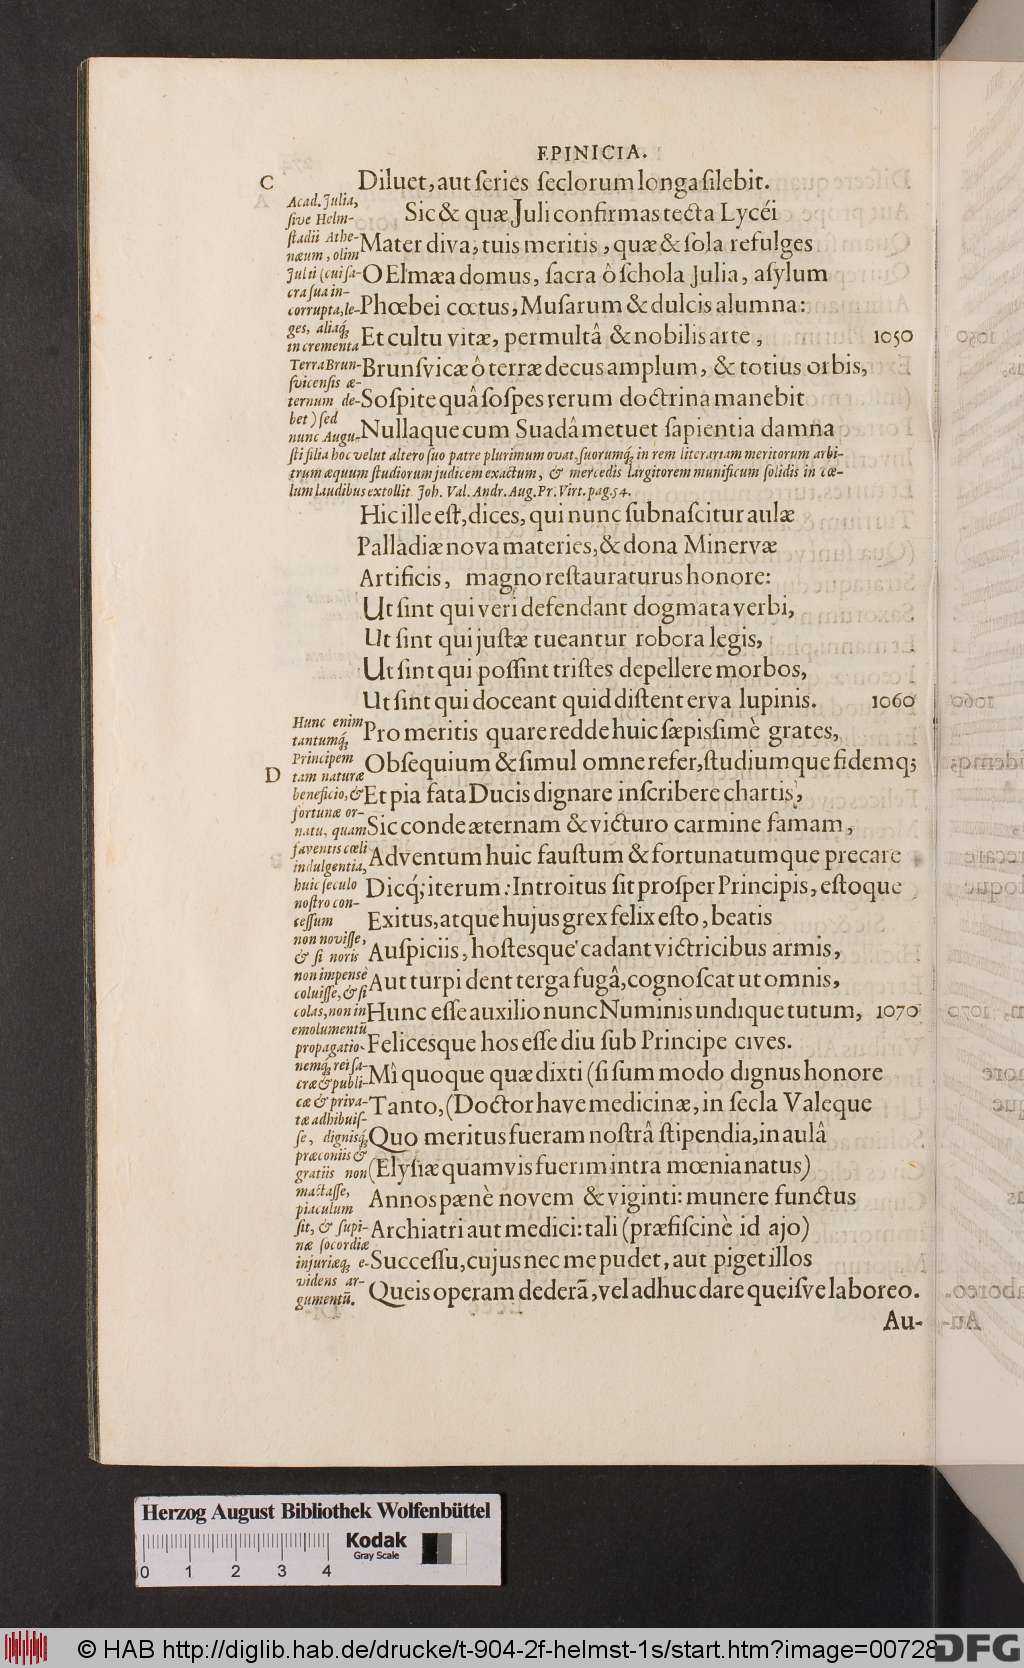 EPINICIA.
C
Diluet, aut ſeries ſeclorum longa ſilebit.
Sic & quæ Juli confirmas tecta Lycéi
Mater diva; tuis meritis, quæ & ſola refulges
O Elmæa domus, ſacra ô ſchola Julia, aſylum
Phœbei cœtus, Muſarum & dulcis alumna:
Et cultu vitæ, permultâ & nobilis arte, 1050
Brunſvicæ ô terræ decus amplum, & totius orbis,
Soſpite quâ ſoſpes rerum doctrina manebit
Nullaque cum Suadâ metuet ſapientia damna
Acad. Julia,
ſive Helm-
ſtadii Athe-
næum, olim
Julii (cui ſa-
cra ſua in-
corrupta, le-
ges, aliaq́;
incrementa
Terra Brun-
ſvicenſis æ-
ternum de-
bet) ſed
nunc Augu-
ſti filia hoc velut altero ſuo patre plurimum ovat, ſuorumq́; in rem literariam meritorum arbi-
trum æquum ſtudiorum judicem exactum, & mercedis largitorem munificum ſolidis in cœ-
lum laudibus extollit. Joh. Val. Andr. Aug. Pr. Virt. pag. 54.
Hic ille eſt, dices, qui nunc ſubnaſcitur aulæ
Palladiæ nova materies, & dona Minervæ
Artificis, magno reſtauraturus honore:
Ut ſint qui veri defendant dogmata verbi,
Ut ſint qui juſtæ tueantur robora legis,
Ut ſint qui poſſint triſtes depellere morbos,
Ut ſint qui doceant quid diſtent erva lupinis. 1060
Pro meritis quare redde huic ſæpiſſimè grates,
D
Obſequium & ſimul omne refer, ſtudiumque fidemq;
Et pia fata Ducis dignare inſcribere chartis,
Sic conde æternam & victuro carmine famam,
Adventum huic fauſtum & fortunatumque precare
Dicq́; iterum: Introitus ſit proſper Principis, eſtoque
Exitus, atque hujus grex felix eſto, beatis
Auſpiciis, hoſtesque cadant victricibus armis,
Aut turpi dent terga fugâ, cognoſcat ut omnis,
Hunc eſſe auxilio nunc Numinis undique tutum, 1070
Felicesque hos eſſe diu ſub Principe cives.
Mî quoque quæ dixti (ſi ſum modo dignus honore
Tanto, (Doctor have medicinæ, in ſecla Valeque
Quo meritus fueram noſtrâ ſtipendia, in aulâ
(Elyſiæ quamvis fuerim intra mœnia natus)
Annos pænè novem & viginti: munere functus
Archiatri aut medici: tali (præfiſcinè id ajo)
Succeſſu, cujus nec me pudet, aut piget illos
Queis operam dederã, vel adhuc dare queiſve laboreo.
Hunc enim
tantumq́;
Principem
tam naturæ
beneficio, &
fortunæ or-
natu, quam
faventis cœli
indulgentia,
huic ſeculo
noſtro con-
ceſſum
non noviſſe,
& ſi noris
non impensè
coluiſſe, & ſi
colas, non in
emolumentũ
propagatio-
nemq́; rei ſa-
cræ & publi-
cæ & priva-
tæ adhibuiſ-
ſe, dignisq́;
præconiis &
gratiis non
mactaſſe,
piaculum
ſit, & ſupi-
næ ſocordiæ
injuriæq́; e-
videns ar-
gumentũ.
Au-
Herzog August Bibliothek Wolfenbüttel
Kodak
Gray Scale
0 1 2 3 4
© HAB http://diglib.hab.de/drucke/t-904-2f-helmst-1s/start.htm?image=00728
DFG